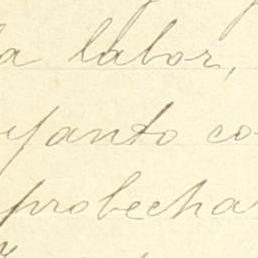 a labor,
yanto co
probecha